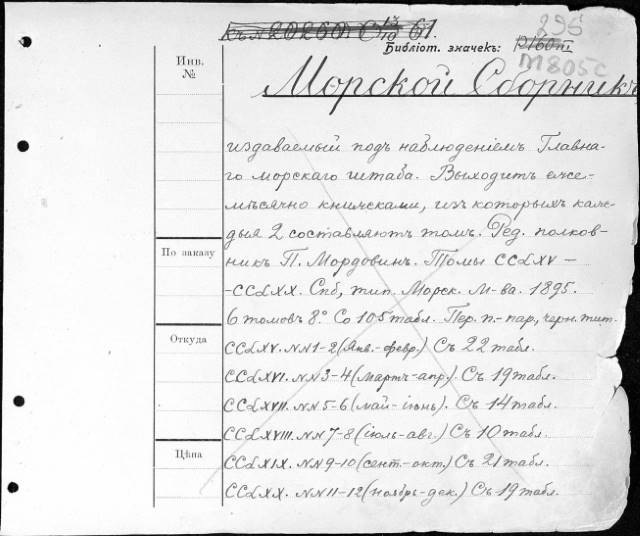 61.
295
Библіот. значекъ: P160III
M805C
Инв.
№
Морской Сборникъ
издаваемый подъ наблюденіемъ Главна-
го морскаго штаба. Выходитъ еже-
мѣсячно книжками, изъ которыхъ каж-
дыя 2 составляютъ томъ. Ред. полков-
По заказу
никъ П. Мордовинъ. Томы CCLXV —
-CCLXX. Спб, тип. Морск. М-ва. 1895.
6 томовъ 8°. Со 105 табл. Пер. п.-пар., черн. тит.
Откуда
CCLXV. NN 1-2 (Янв.-февр.) Съ 22 табл.
CCLXVI. NN 3-4 (Мартъ-апр.). Съ 19 табл.
CCLXVII. NN 5-6 (май-іюнь). Съ 14 табл.
CCLXVIII. NN 7-8 (іюль-авг.) Съ 10 табл.
Цѣна
CCLXIX. NN 9-10 (сент.-окт.) Съ 21 табл.
CCLXX. NN 11-12 (ноябрь-дек.) Съ 19 табл.